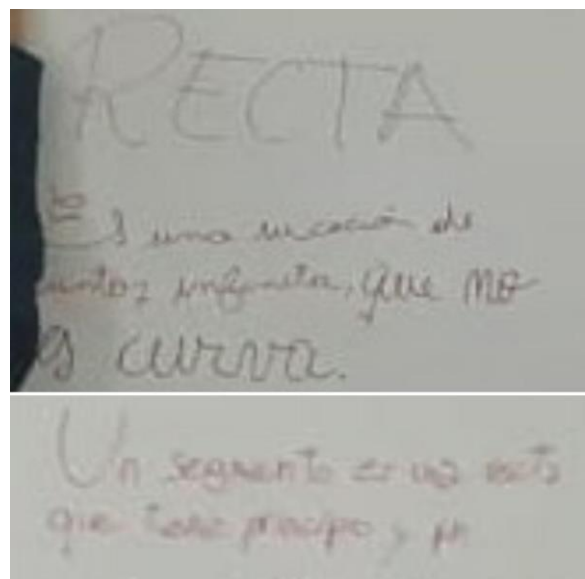 RECTA
Es una sucesión de
puntos infinitos, que no
es curva.
Un segmento es una recta
que tiene principio y fin